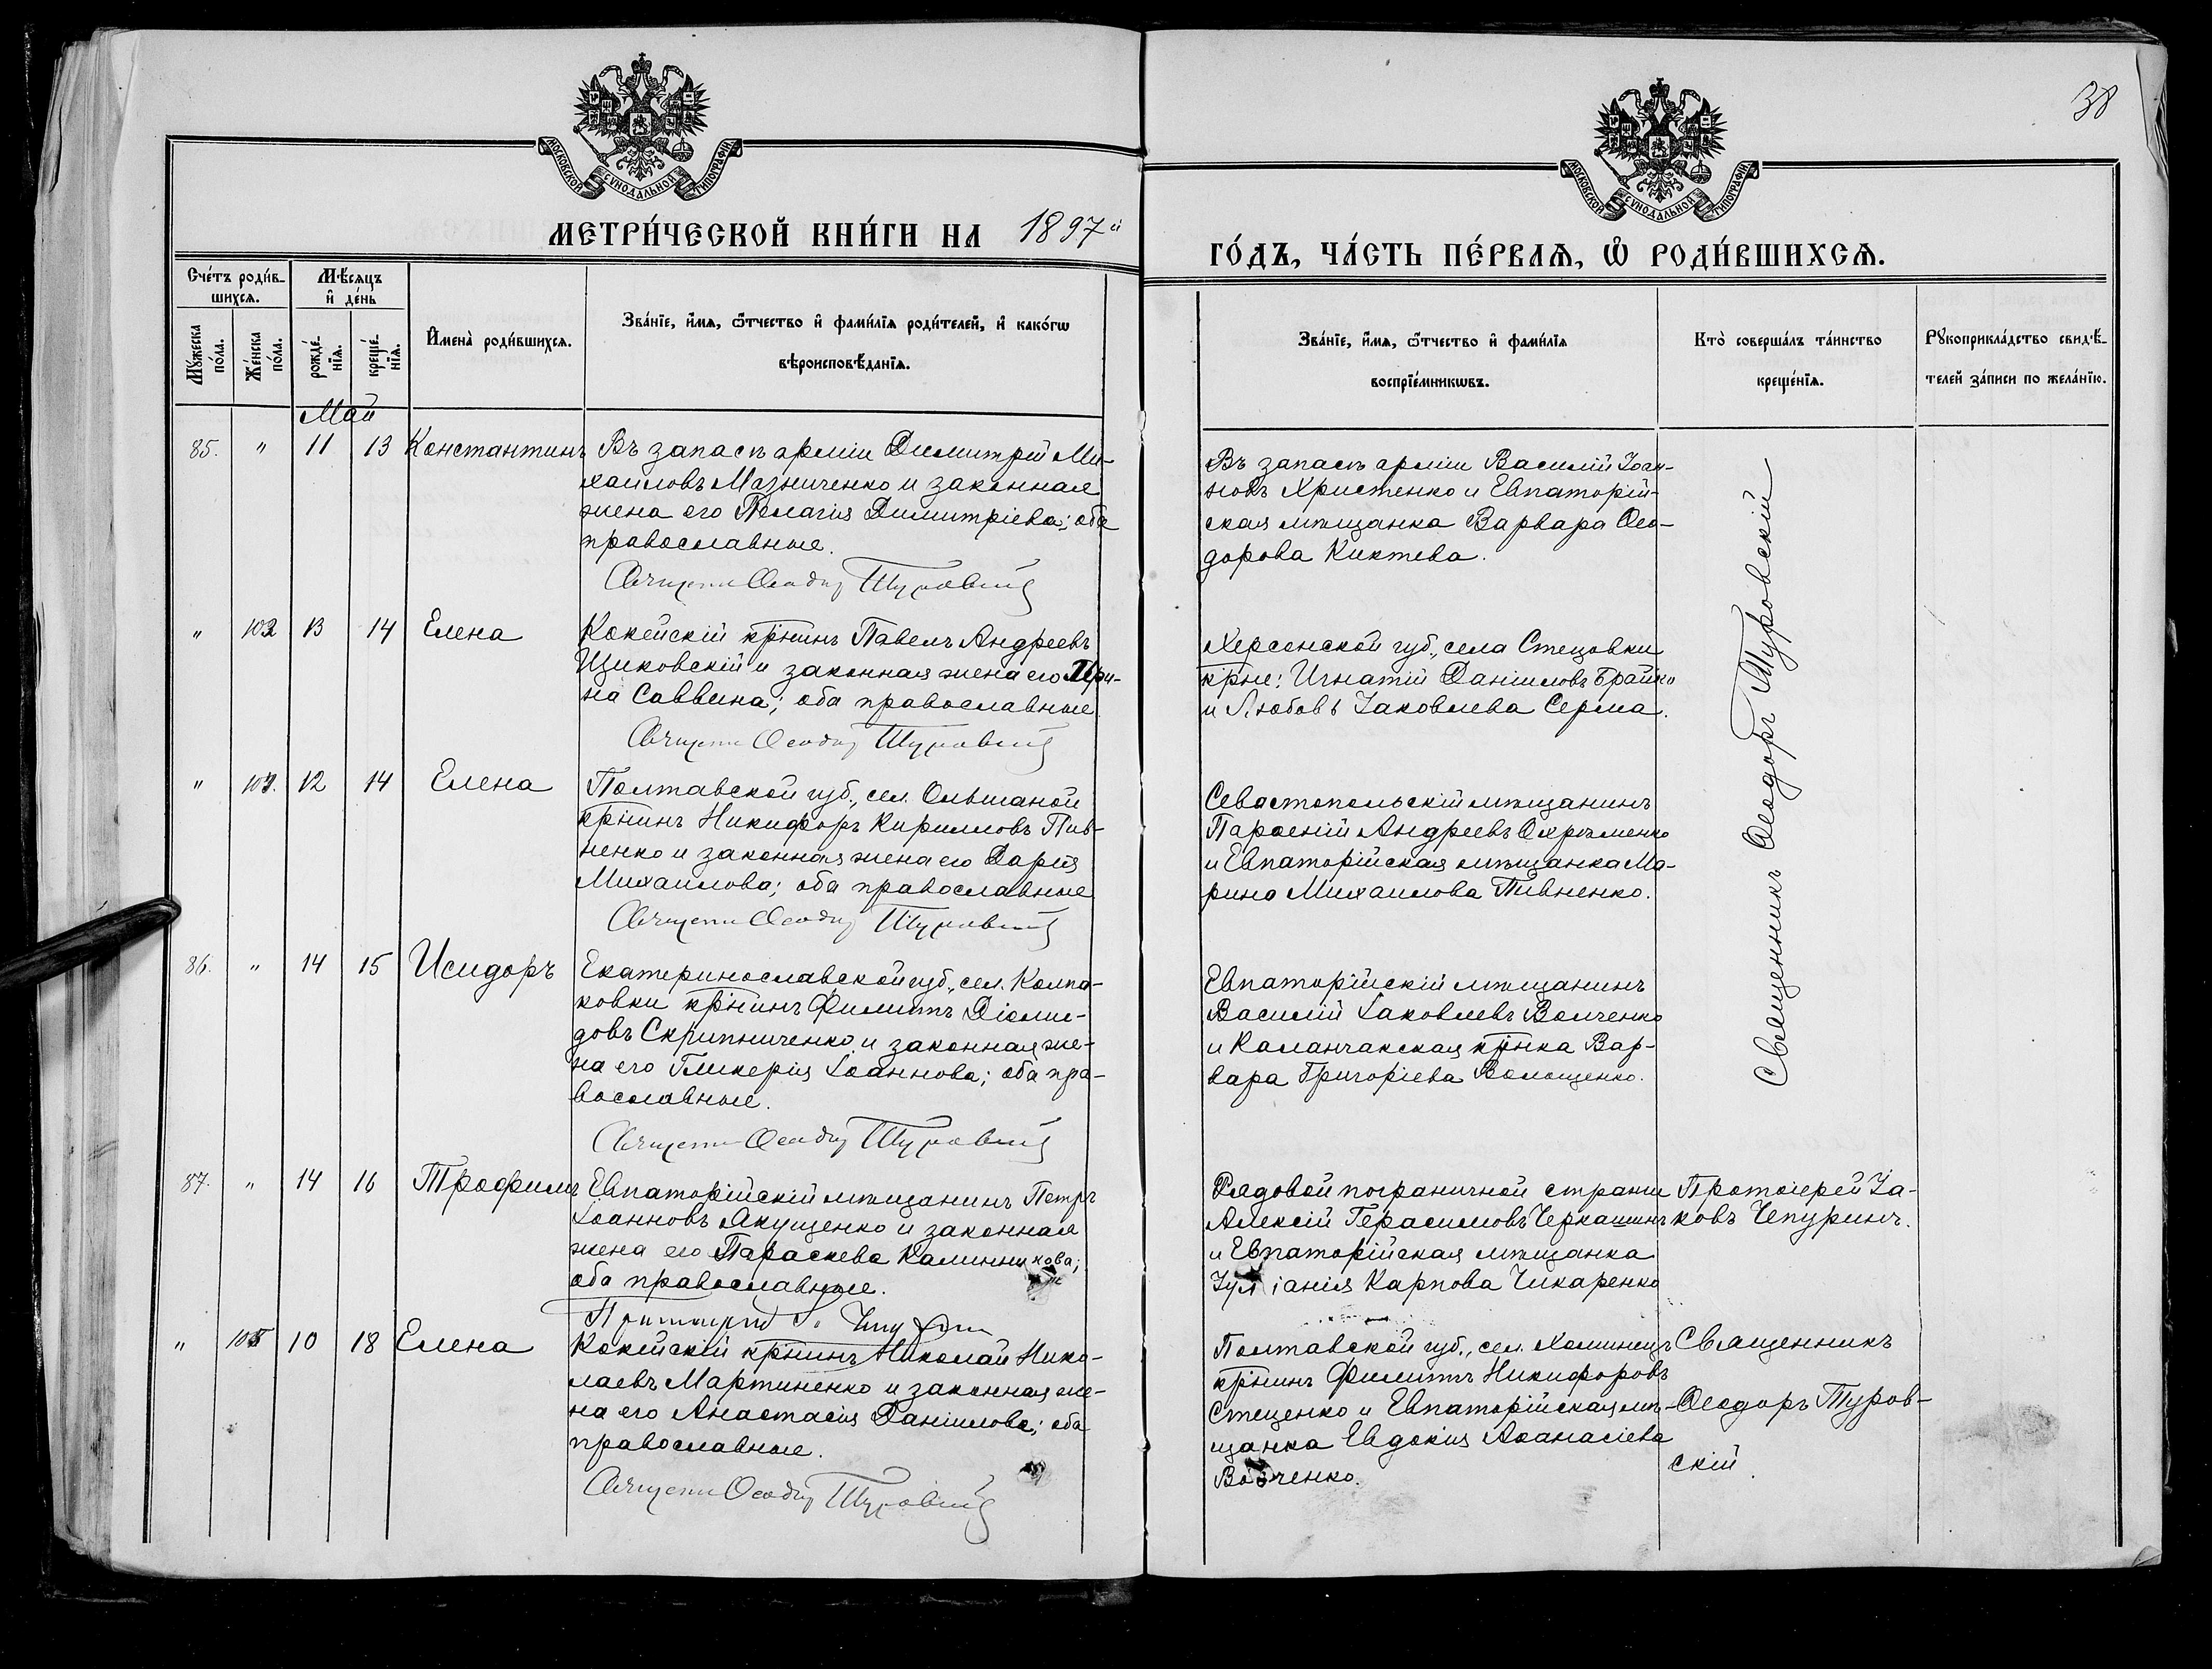 38
МОСКОВСКОЙ СѴНОДАЛЬНОЙ ТИПОГРАФІИ
МОСКОВСКОЙ СѴНОДАЛЬНОЙ ТИПОГРАФІИ
МЕТРИ́ЧЕСКОЙ КНИ́ГИ НА 1897й
ГО́ДЪ, ЧА́СТЬ ПЕ́РВАѦ, Ѽ РОДИ́ВШИХСѦ.
Сче́тъ роди́в-
шихсѧ.
Мѣ́сѧцъ
и҆ де́нь
Мꙋ́жеска
по́ла.
Же́нска
по́ла.
рожде́-
нїѧ.
креще́-
нїѧ.
И҆мена̀ роди́вшихсѧ.
Зва́нїе, и҆́мѧ, ѻ҆́тчество и҆ фами́лїѧ роди́телей, и҆ како́гѡ
вѣроисповѣ́данїѧ.
Зва́нїе, и҆́мѧ, ѻ҆́тчество и҆ фами́лїѧ
воспрїе́мникѡвъ.
Кто̀ соверша́лъ та́инство
креще́нїѧ.
Рꙋкоприкла́дство свидѣ́-
телей за́писи по жела́нїю.
Май
85. " 11 13 Константинъ
Въ запасѣ арміи Димитрій Ми-
хаиловъ Мазниченко и законная
жена его Пелагія Димитріева; оба
православные.
Священн Ѳеодор Туровскій
Въ запасѣ арміи Василій Іоан-
новъ Христенко и Евпаторій-
ская мѣщанка Варвара Ѳео-
дорова Киктева.
Священникъ Ѳеодоръ Туровскій
" 102 13 14 Елена
Кокейскій крнинъ Павелъ Андреевъ
Щиковскій и законная жена его Ири-
на Саввина; оба православные.
Священн Ѳеодор Туровскій
Херсонской губ., села Стецовки
крне: Игнатій Даніиловъ Брайко
и Любовь Іаковлева Серма.
" 103. 12 14 Елена
Полтавской губ., сел. Ольшаной
крнинъ Никифоръ Кирилловъ Пив-
ненко и законная жена его Дарія
Михаилова; оба православные
Священн Ѳеодор Туровскій
Севастопольскій мѣщанинъ
Парѳеній Андреевъ Охрѣменко
и Евпаторійская мѣщанка Ма-
рина Михаилова Пивненко.
86. " 14 15 Исидоръ
Екатеринославской губ., сел. Колпа-
ковки крнинъ Филиппъ Діоми-
довъ Скрипниченко и законная же-
на его Гликерія Іоаннова; оба пра-
вославные.
Священн Ѳеодор Туровскій
Евпаторійскій мѣщанинъ
Василій Іаковлевъ Волченко
и Каланчакская крнка Вар-
вара Григоріева Волощенко.
87. " 14 16 Трофимъ
Евпаторійскій мѣщанинъ Петръ
Іоанновъ Якущенко и законная
жена его Параскева Калинникова;
оба православные.
Протоіерей І. Чепурин
Рядовой пограничной стражи
Алексій Герасимовъ Черкашинъ
и Евпаторійская мѣщанка
Іуліанія Карпова Чикаренко
Протоіерей Іа-
ковъ Чепуринъ.
" 10 18 Елена
Кокейскій крнинъ Николай Нико-
лаевъ Мартиненко и законная же-
на его Анастасія Даніилова; оба
православные.
Священн Ѳеодор Туровскій
Полтавской губ., сел. Хоминецъ
крнинъ Филиппъ Никифоровъ
Стеценко и Евпаторійская мѣ-
щанка Евдокія Аѳанасіева
Священникъ
Ѳеодоръ Туров-
скій.